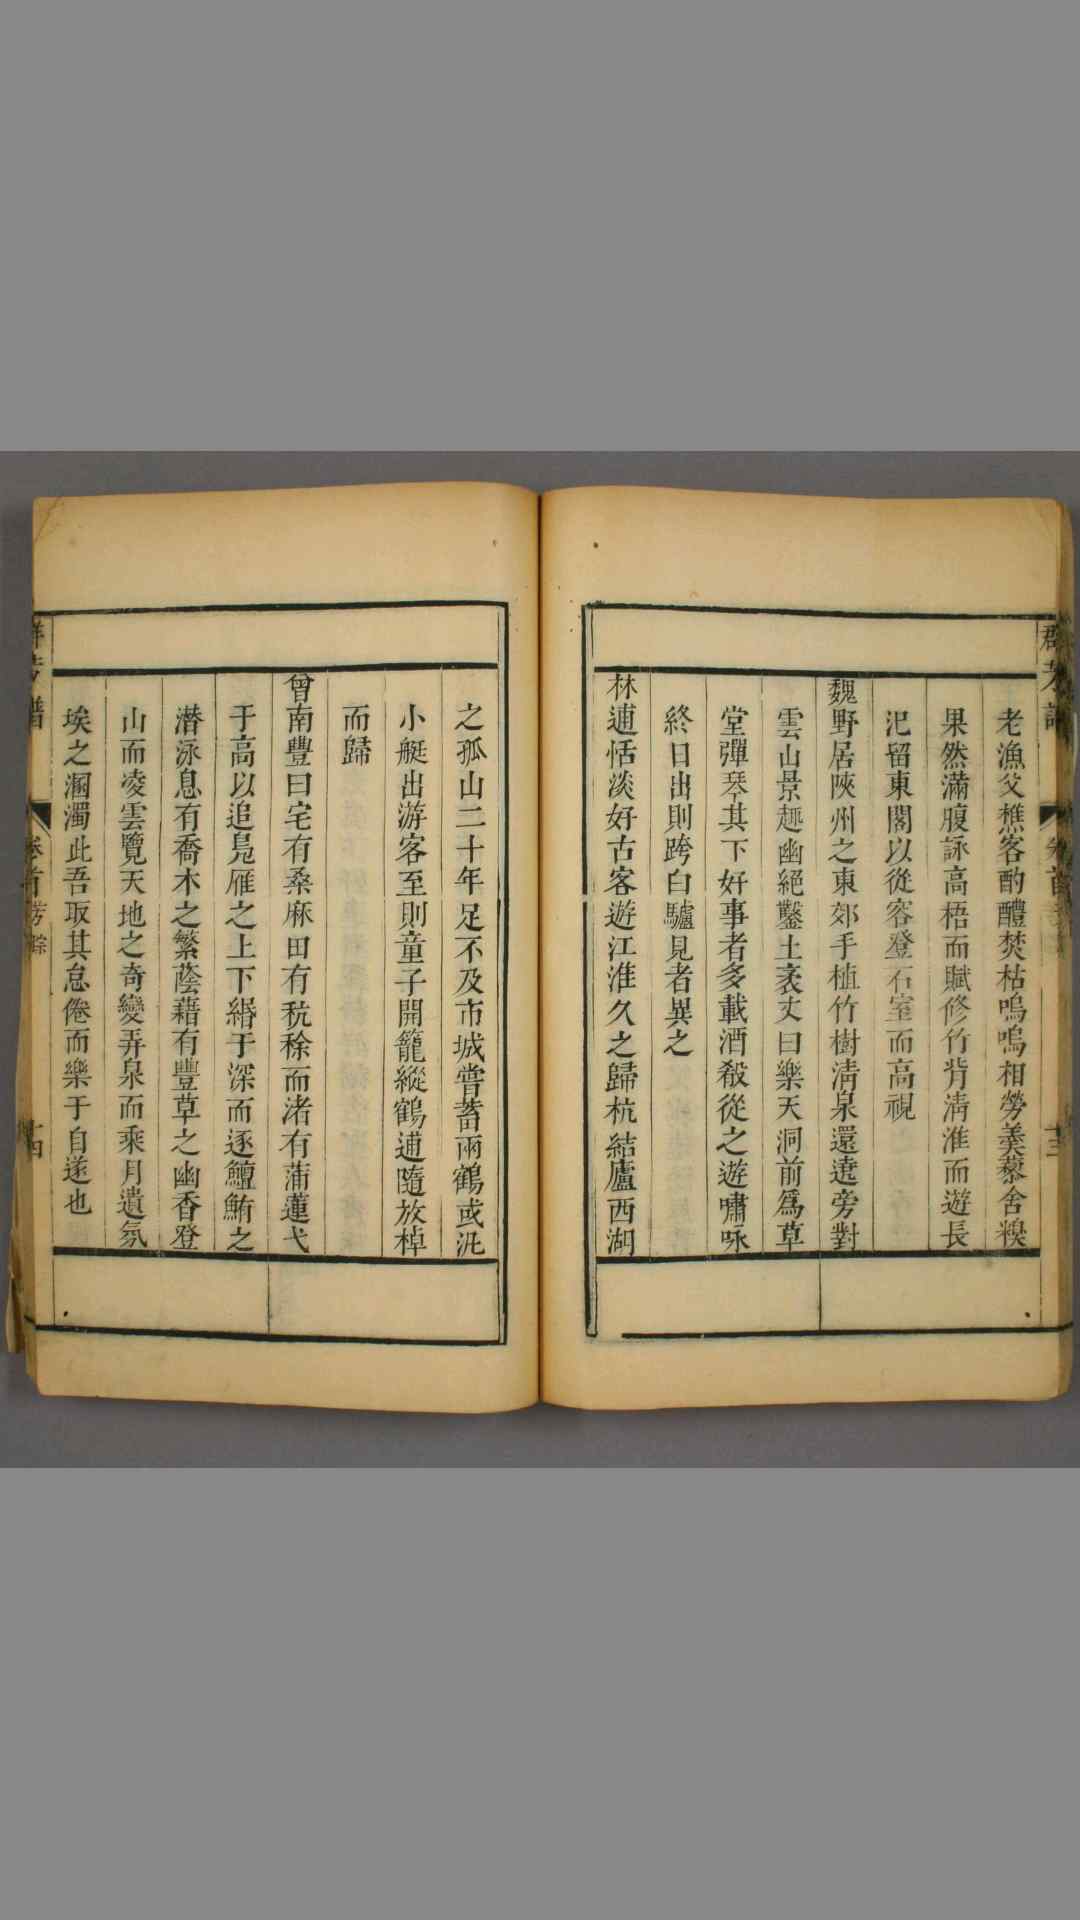 老漁父樵客酌醴焚枯嗚嗚相勞羮藜舍糗
果然滿腹詠高梧而賦修竹背淸淮而遊長
汜留東閣以從容登石室而高視
魏野居陝州之東郊手植竹樹淸泉還遶旁對
雲山景趣幽絕鑿土袤丈曰樂天洞前爲草
堂彈琴其下好事者多載酒殽從之遊嘯咏
終日出則跨白驢見者異之
林逋恬淡好古客遊江淮久之歸杭結廬西湖
之孤山二十年足不及市城嘗蓄兩鶴或汎
小艇出游客至則童子開籠縱鶴逋隨放棹
而歸
曾南豐曰宅有桑麻田有秔稌而渚有蒲蓮弋
于高以追鳧雁之上下緡于深而逐鱣鮪之
潛泳息有喬木之繁蔭藉有豐草之幽香登
山而凌雲覽天地之奇變弄泉而乘月遺氛
埃之溷濁此吾取其怠倦而樂于自遂也
卷首
十四